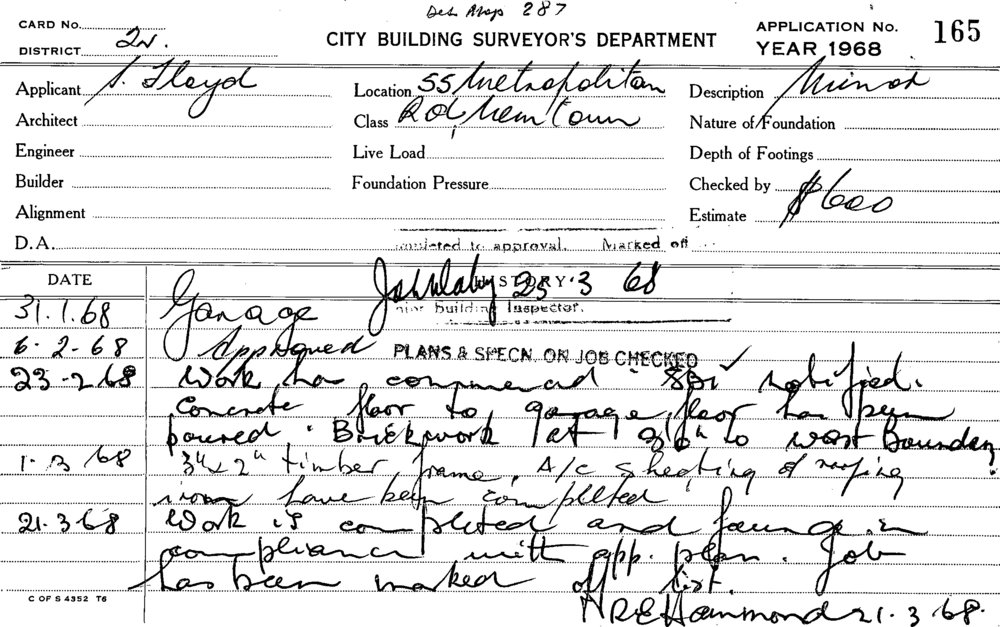 287
CARD No.
DISTRICT 2W.
CITY BUILDING SURVEYOR'S DEPARTMENT
APPLICATION No. 165
YEAR 1968
Applicant S. Floyd
Location 55 Metropolitan
Description Minor
Architect
Class Rd,
Nature of Foundation
Engineer
Live Load
Depth of Footings
Builder
Foundation Pressure
Checked by
Alignment
Estimate $600
D.A.
completed to approval. Marked off
DATE
HISTORY
23 3 68
building Inspector.
31.1.68 Garage
6.2.68 Approved
PLANS & SPECN. ON JOB CHECKED
23-2-68 Work has commenced SBI notified.
Concrete floor to garage floor has been
poured. Brickwork at to west Boundary.
1-3 68 3"x2" timber frame, A/c sheeting & roofing
iron have been completed
21-3-68 Work is completed and found in
compliance with app. plan. Job
has been marked off list.
C OF S 4352 T6
RE Hammond 21.3.68.